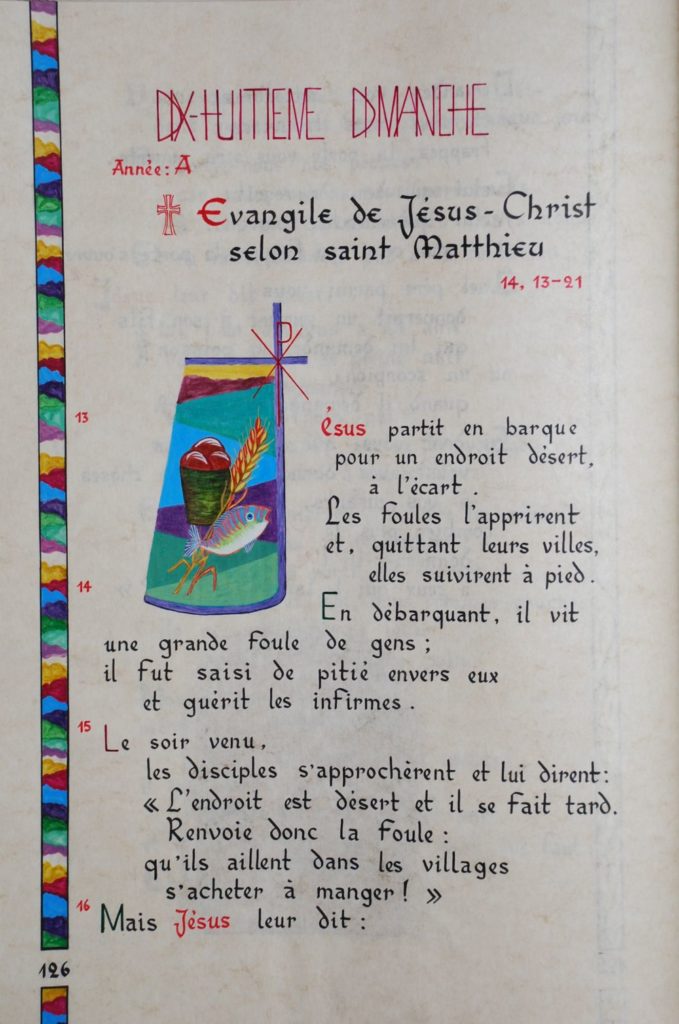 DIX-HUITIEME DIMANCHE
Année: A
Evangile de Jésus-Christ
selon saint Matthieu
14, 13-21
13
Jésus partit en barque
pour un endroit désert,
à l'écart.
Les foules l'apprirent
et, quittant leurs villes,
elles suivirent à pied.
14
En débarquant, il vit
une grande foule de gens;
il fut saisi de pitié envers eux
et guérit les infirmes.
15
Le soir venu,
les disciples s'approchèrent et lui dirent:
« L'endroit est désert et il se fait tard.
Renvoie donc la foule:
qu'ils aillent dans les villages
s'acheter à manger! »
16
Mais Jésus leur dit:
126